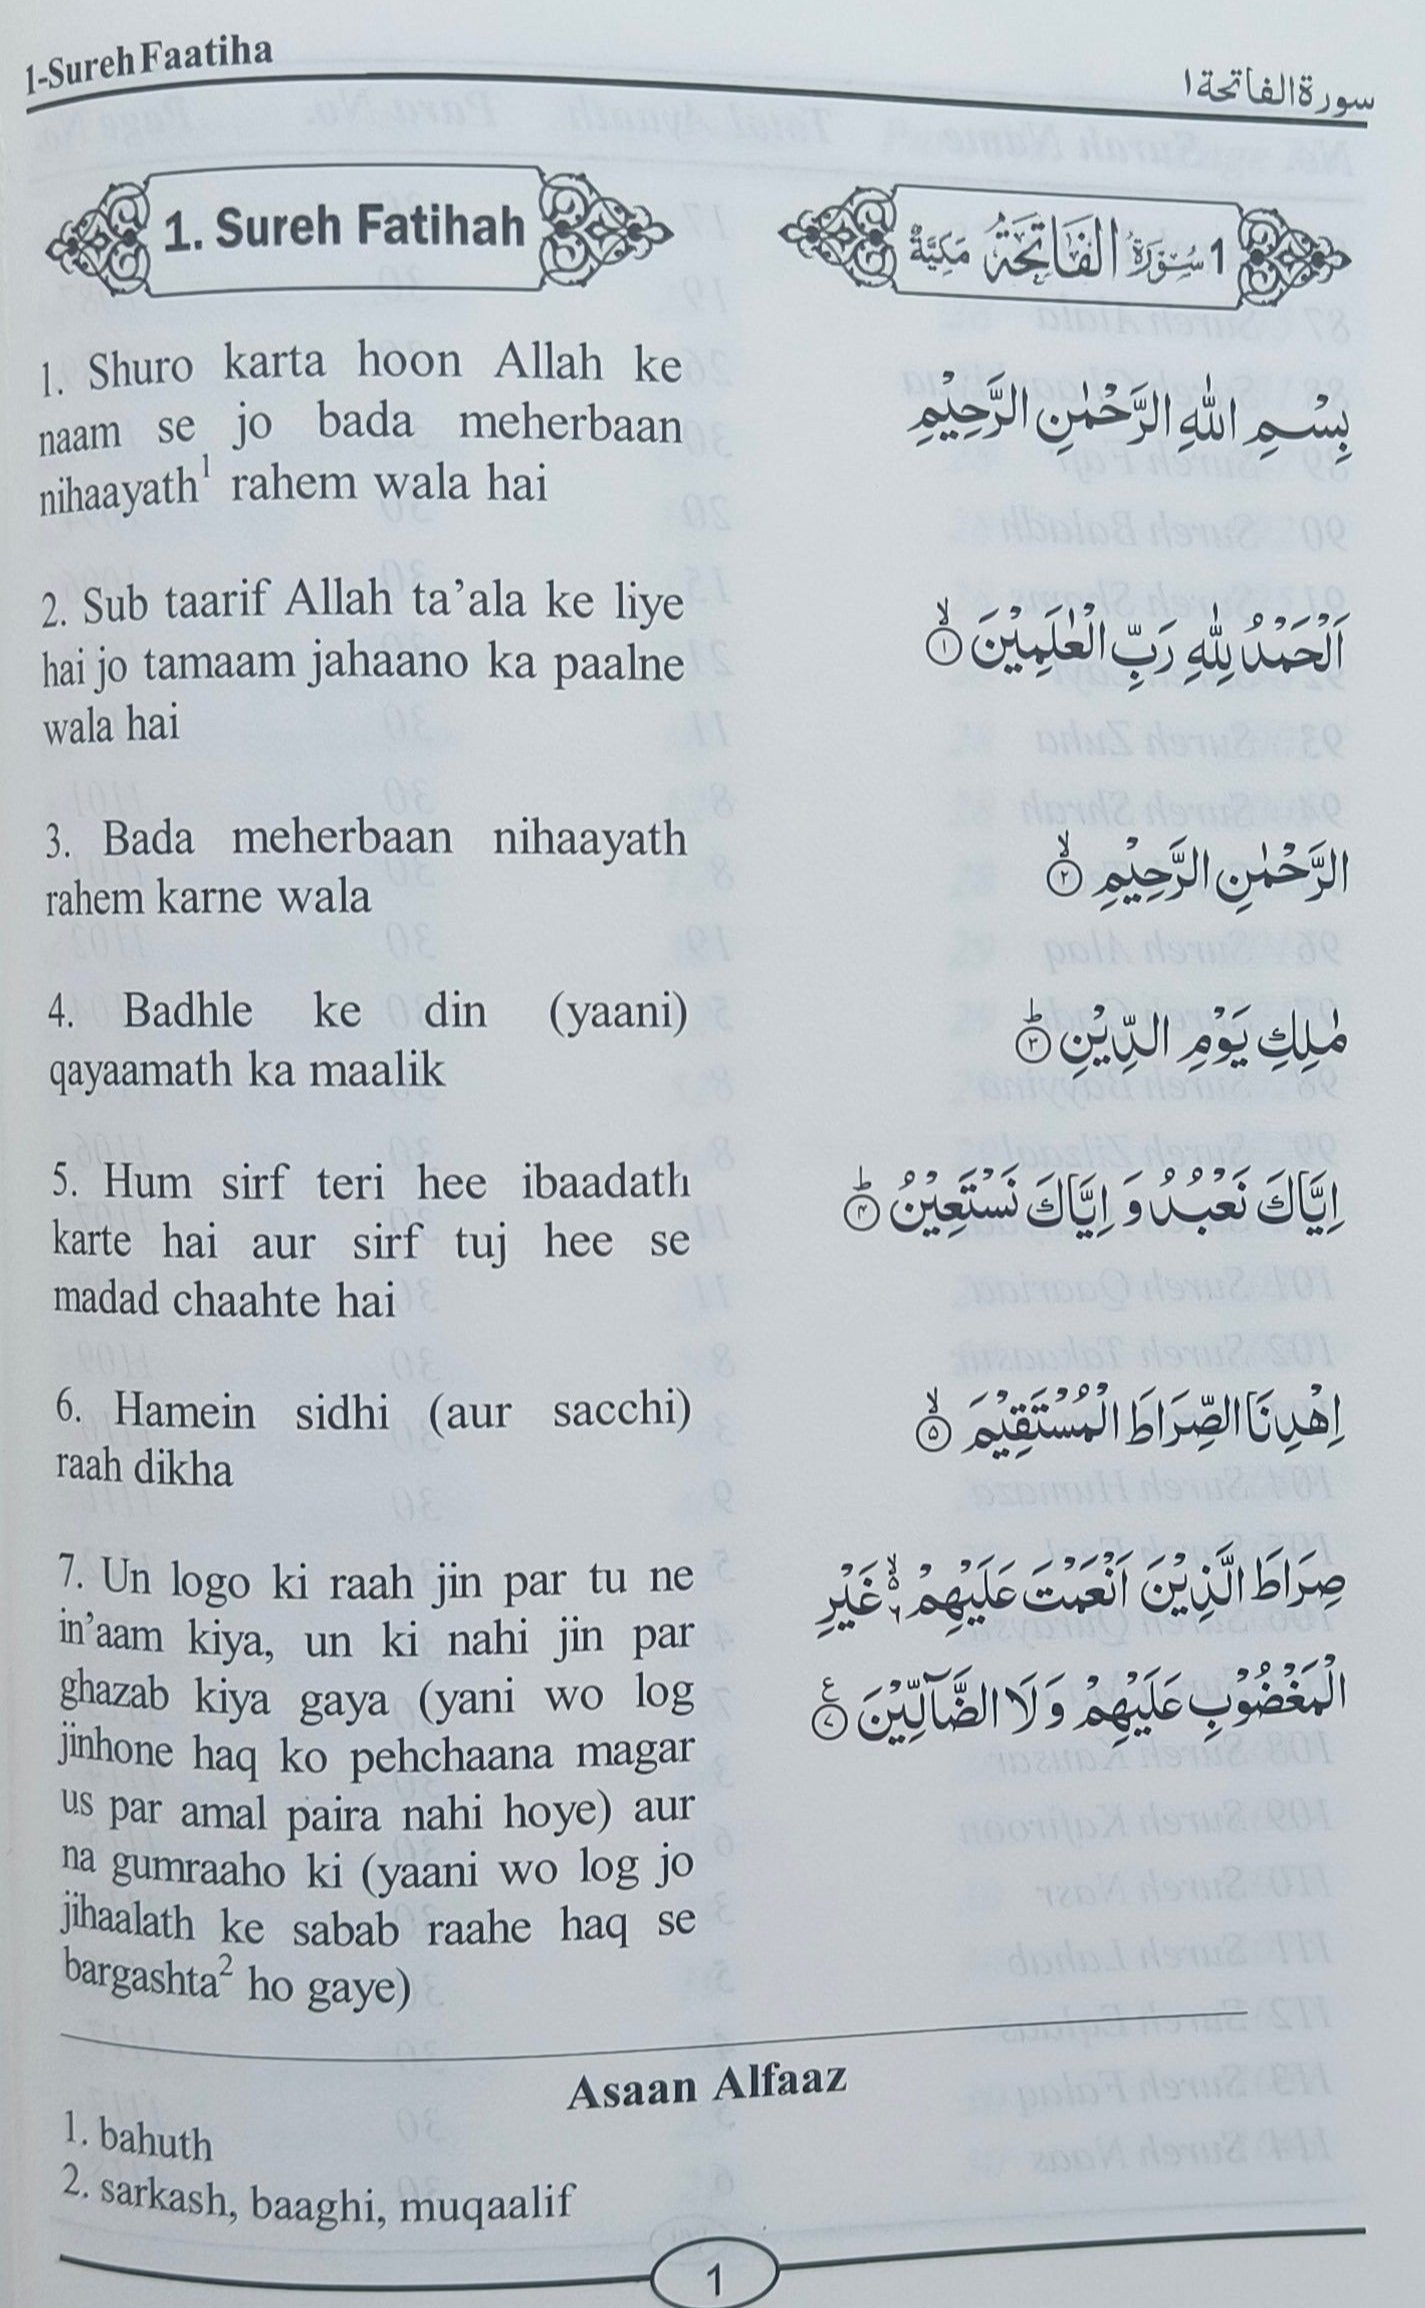 1-Sureh Faatiha
سورة الفاتحة ١
1. Sureh Fatihah
1 سُوْرَةُ الْفَاتِحَةُ مَكِيَّةٌ
1. Shuro karta hoon Allah ke
naam se jo bada meherbaan
nihaayath¹ rahem wala hai
بِسْمِ اللّٰهِ الرَّحْمٰنِ الرَّحِيْمِ
2. Sub taarif Allah ta’ala ke liye
hai jo tamaam jahaano ka paalne
wala hai
اَلْحَمْدُ لِلّٰهِ رَبِّ الْعٰلَمِيْنَ ۙ﴿۱﴾
3. Bada meherbaan nihaayath
rahem karne wala
الرَّحْمٰنِ الرَّحِيْمِ ۙ﴿۲﴾
4. Badhle ke din (yaani)
qayaamath ka maalik
مٰلِكِ يَوْمِ الدِّيْنِ ؕ﴿۳﴾
5. Hum sirf teri hee ibaadath
karte hai aur sirf tuj hee se
madad chaahte hai
اِيَّاكَ نَعْبُدُ وَ اِيَّاكَ نَسْتَعِيْنُ ؕ﴿۴﴾
6. Hamein sidhi (aur sacchi)
raah dikha
اِهْدِنَا الصِّرَاطَ الْمُسْتَقِيْمَ ۙ﴿۵﴾
7. Un logo ki raah jin par tu ne
in’aam kiya, un ki nahi jin par
ghazab kiya gaya (yani wo log
jinhone haq ko pehchaana magar
us par amal paira nahi hoye) aur
na gumraaho ki (yaani wo log jo
jihaalath ke sabab raahe haq se
bargashta² ho gaye)
صِرَاطَ الَّذِيْنَ اَنْعَمْتَ عَلَيْهِمْ ۙ۬ۦ غَيْرِ
الْمَغْضُوْبِ عَلَيْهِمْ وَ لَا الضَّآلِّيْنَ ﴿۷﴾ ع
Asaan Alfaaz
1. bahuth
2. sarkash, baaghi, muqaalif
1